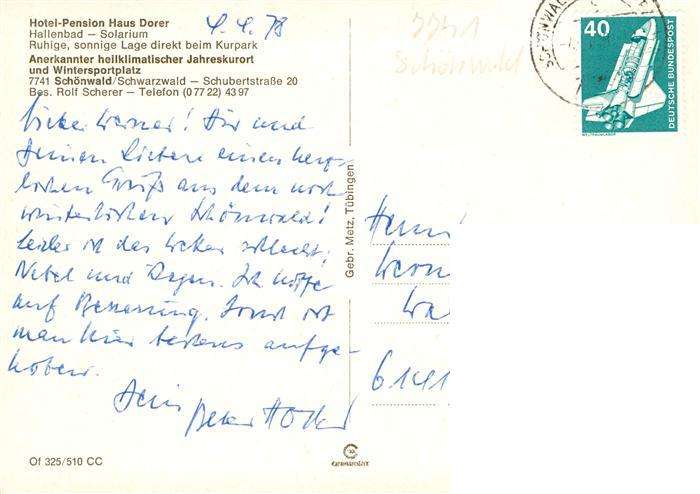 Hotel-Pension Haus Dorer
Hallenbad – Solarium
Ruhige, sonnige Lage direkt beim Kurpark
Anerkannter heilklimatischer Jahreskurort
und Wintersportplatz
7741 Schönwald/Schwarzwald – Schubertstraße 20
Bes. Rolf Scherer – Telefon (0 77 22) 43 97
4.4.78
7741
Schönwald
Lieber Werner! Dir und
Deinen Lieben einen herz-
lichen Gruß aus dem noch
winterlichen Schönwald!
Leider ist das Wetter schlecht,
Nebel und Regen. Ich hoffe
auf Besserung. Sonst ist
man hier bestens aufge-
hoben.
Dein Peter
Gebr. Metz, Tübingen
Herrn
Wern
Wa
6141
40
DEUTSCHE BUNDESPOST
WELTRAUMLABOR
Of 325/510 CC